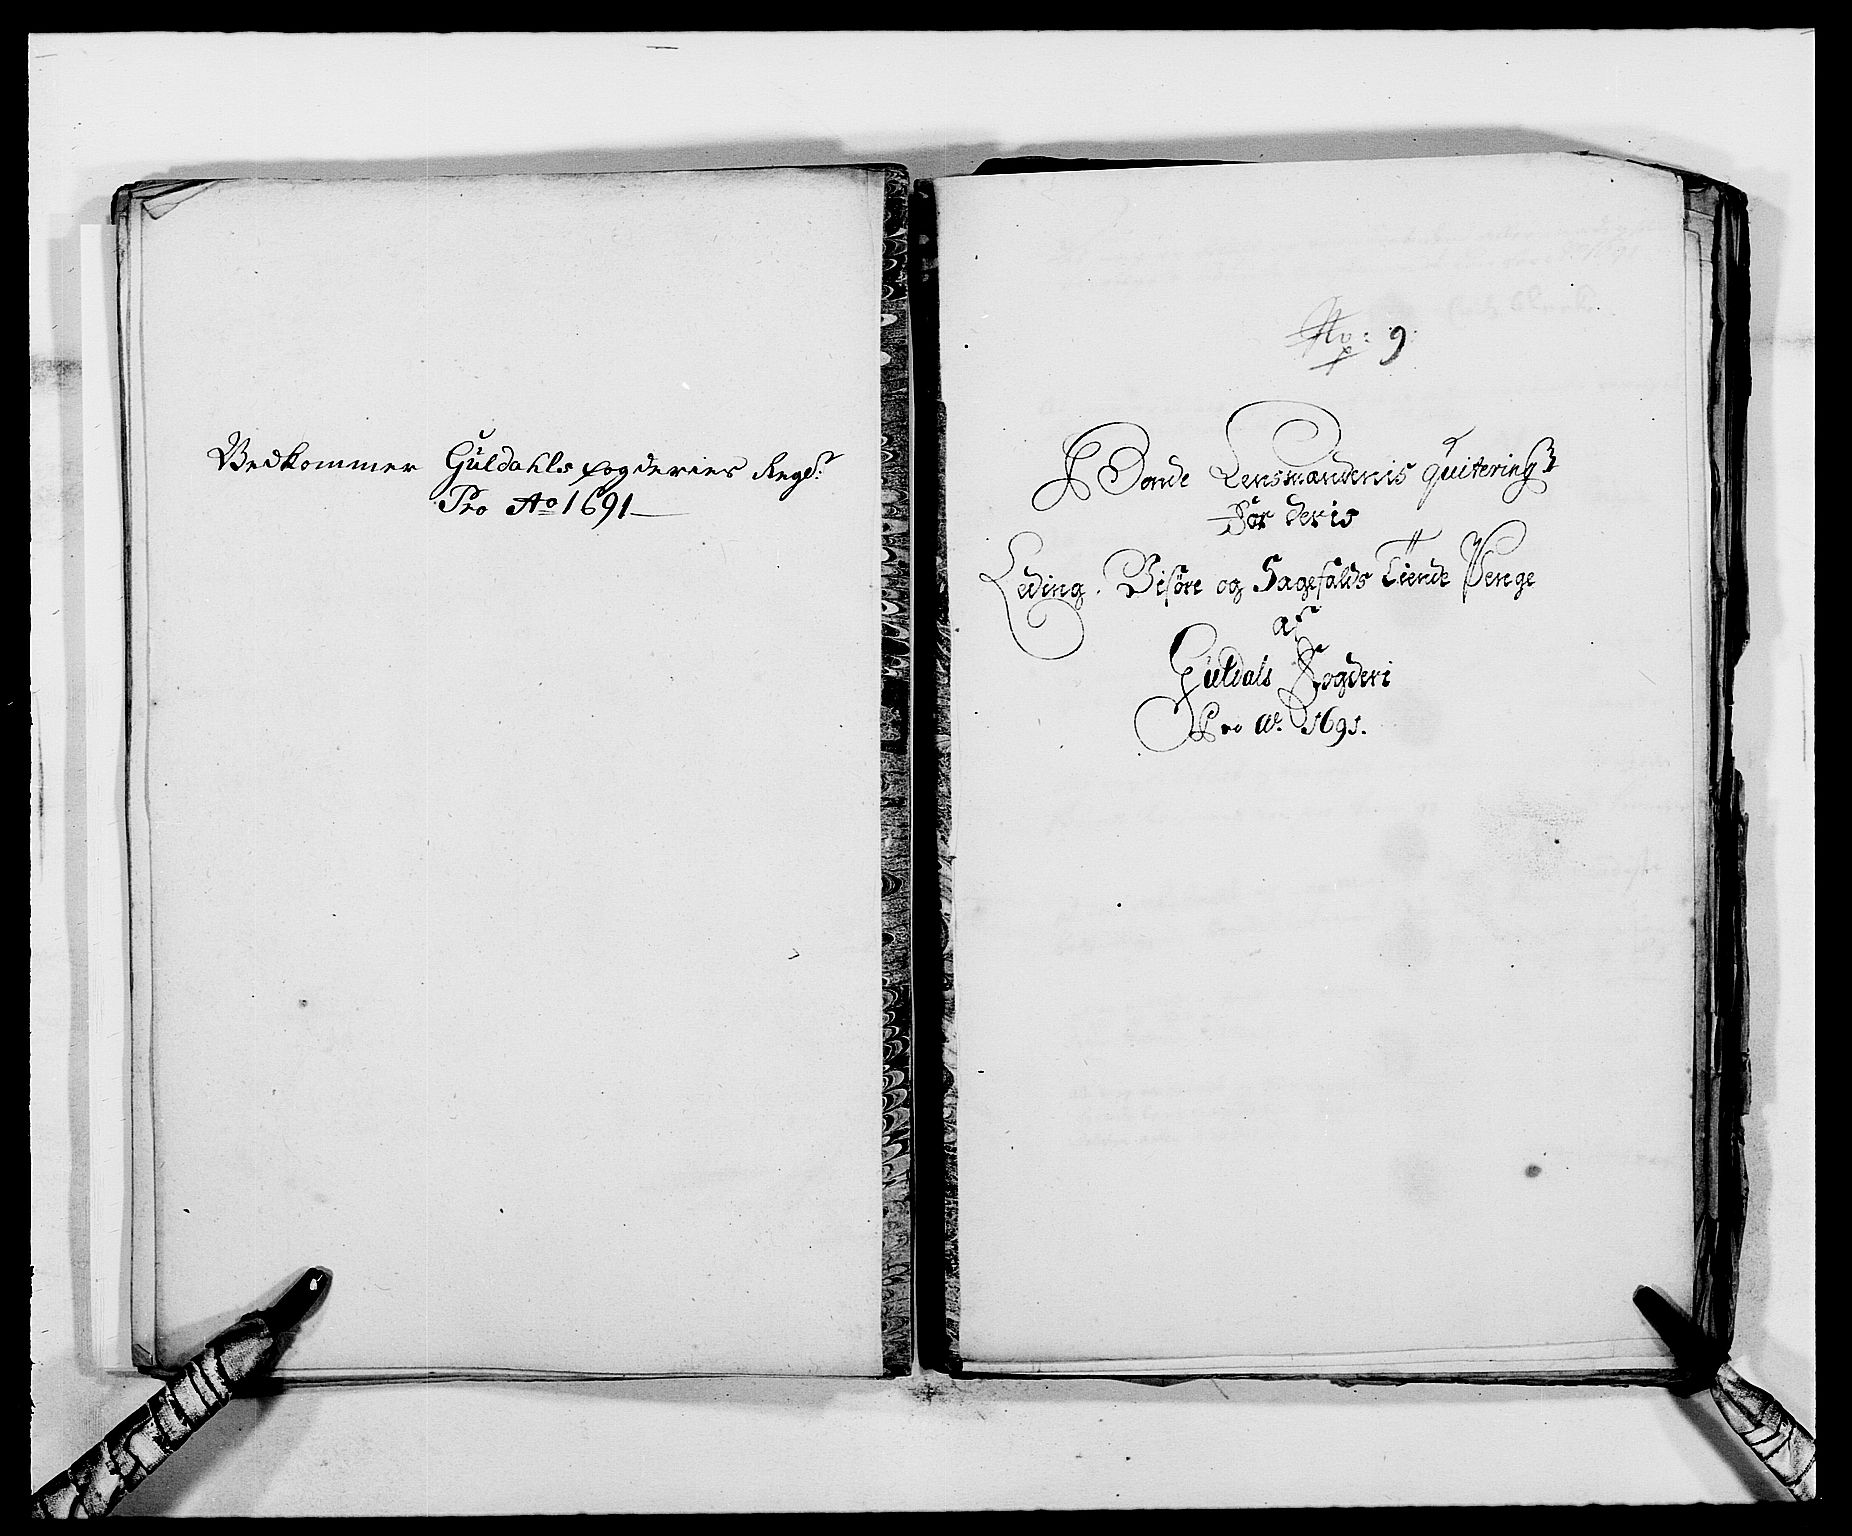 Vedkommer Guldahls fogderies Regs:
Pro Ao 1691
No: 9
Bonde Lensmandenis quitering
For deris
Leding, Visøre og Sagefalds Tiende Penge
af
Guldals Fogderi
Pro Ao. 1691.